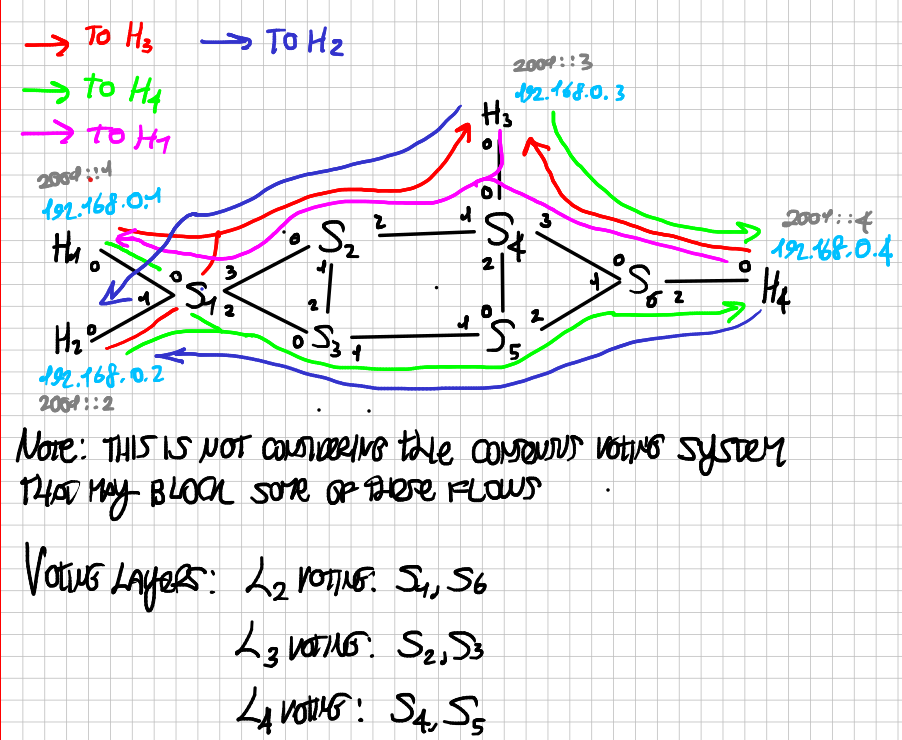 → TO H3 → TO H2
→ TO H4
→ TO H1
2001::3
192.168.0.3
H3
0
0
2001::1
192.168.0.1
H1
0
0
1
S1
3
2
H2
0
192.168.0.2
2001::2
0
S2
2
1
2
0
S3
1
1
S4
3
2
0
1
S5
2
0
1
S6
2
0
H4
2001::4
192.168.0.4
NOTE: THIS IS NOT CONSIDERING THE CONSENSUS VOTING SYSTEM
THAT MAY BLOCK SOME OF THESE FLOWS
VOTING LAYERS: L2 VOTING: S1, S6
L3 VOTING: S2, S3
L4 VOTING: S4, S5